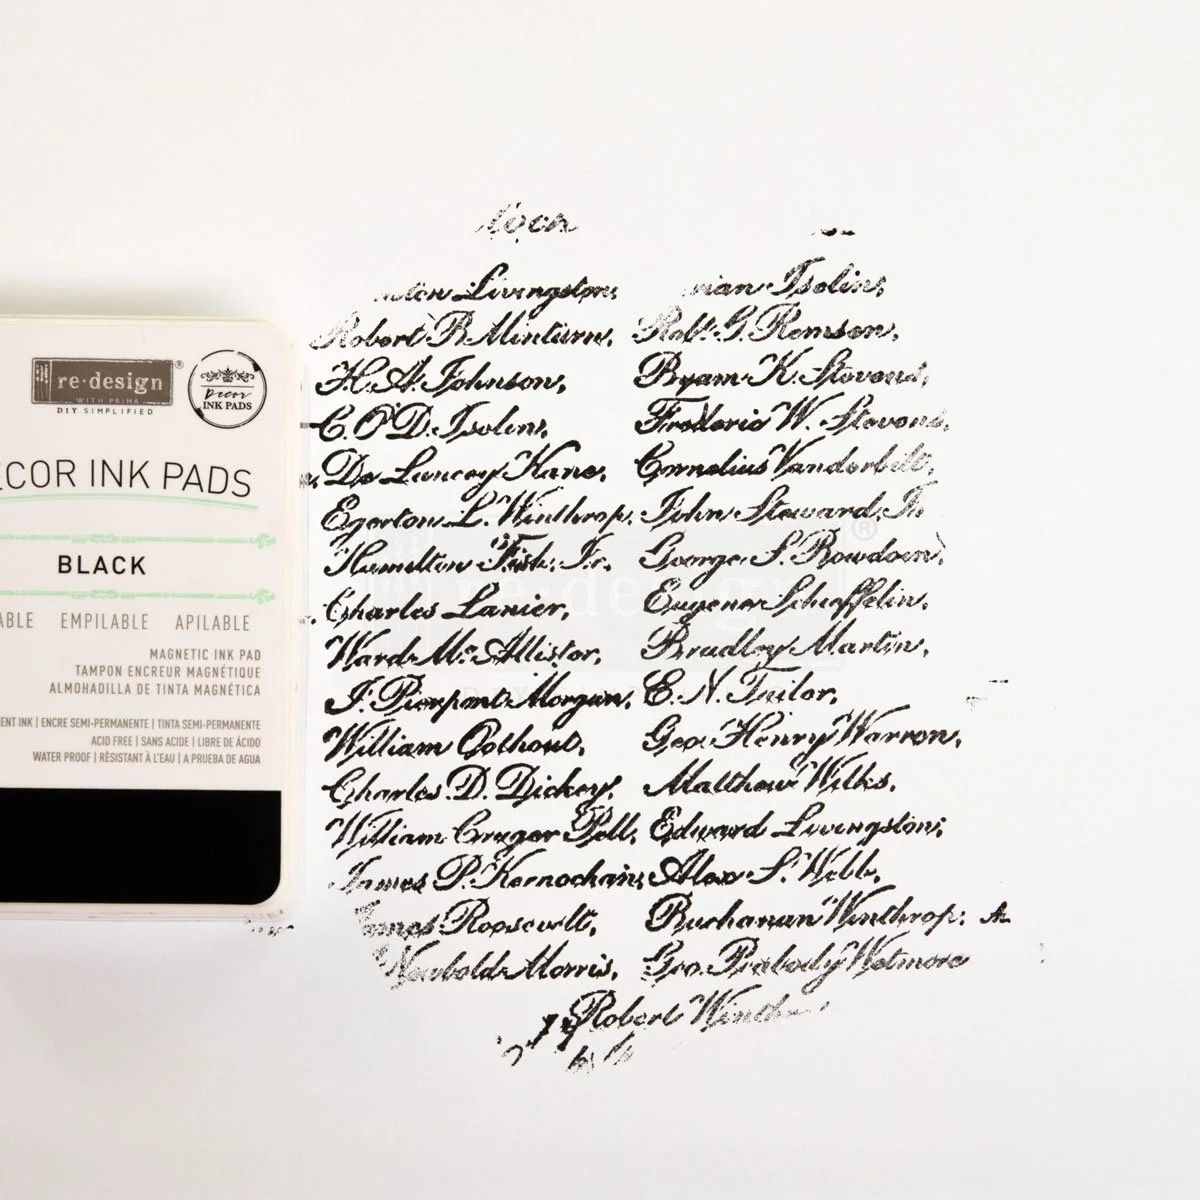 re·design®
WITH PRIMA
DIY SIMPLIFIED
Decor
INK PADS
ECOR INK PADS
BLACK
ABLE EMPILABLE APILABLE
MAGNETIC INK PAD
TAMPON ENCREUR MAGNÉTIQUE
ALMOHADILLA DE TINTA MAGNÉTICA
ENT INK | ENCRE SEMI-PERMANENTE | TINTA SEMI-PERMANENTE
ACID FREE | SANS ACIDE | LIBRE DE ÁCIDO
WATER PROOF | RÉSISTANT À L'EAU | A PRUEBA DE AGUA
Livingston, Iselin,
Robert B. Minturn, Robt. G. Remsen,
H. A. Johnson, Byam K. Stevens,
C. O'D. Iselin, Frederic W. Stevens,
De Lancey Kane, Cornelius Vanderbilt,
Egerton L. Winthrop, John Steward, Jr.
Hamilton Fish, Jr. George S. Bowdoin,
Charles Lanier, Eugene Schieffelin,
Ward McAllister, Bradley Martin,
J. Pierpont Morgan, E. N. Tailor,
William Oothout, Geo. Henry Warren,
Charles D. Dickey, Matthew Wilks,
William Cruger Pell, Edward Livingston,
James P. Kernochan, Alex S. Webb,
James Roosevelt, Buchanan Winthrop,
Newbold Morris, Geo. Peabody Wetmore
Robert
re·design®